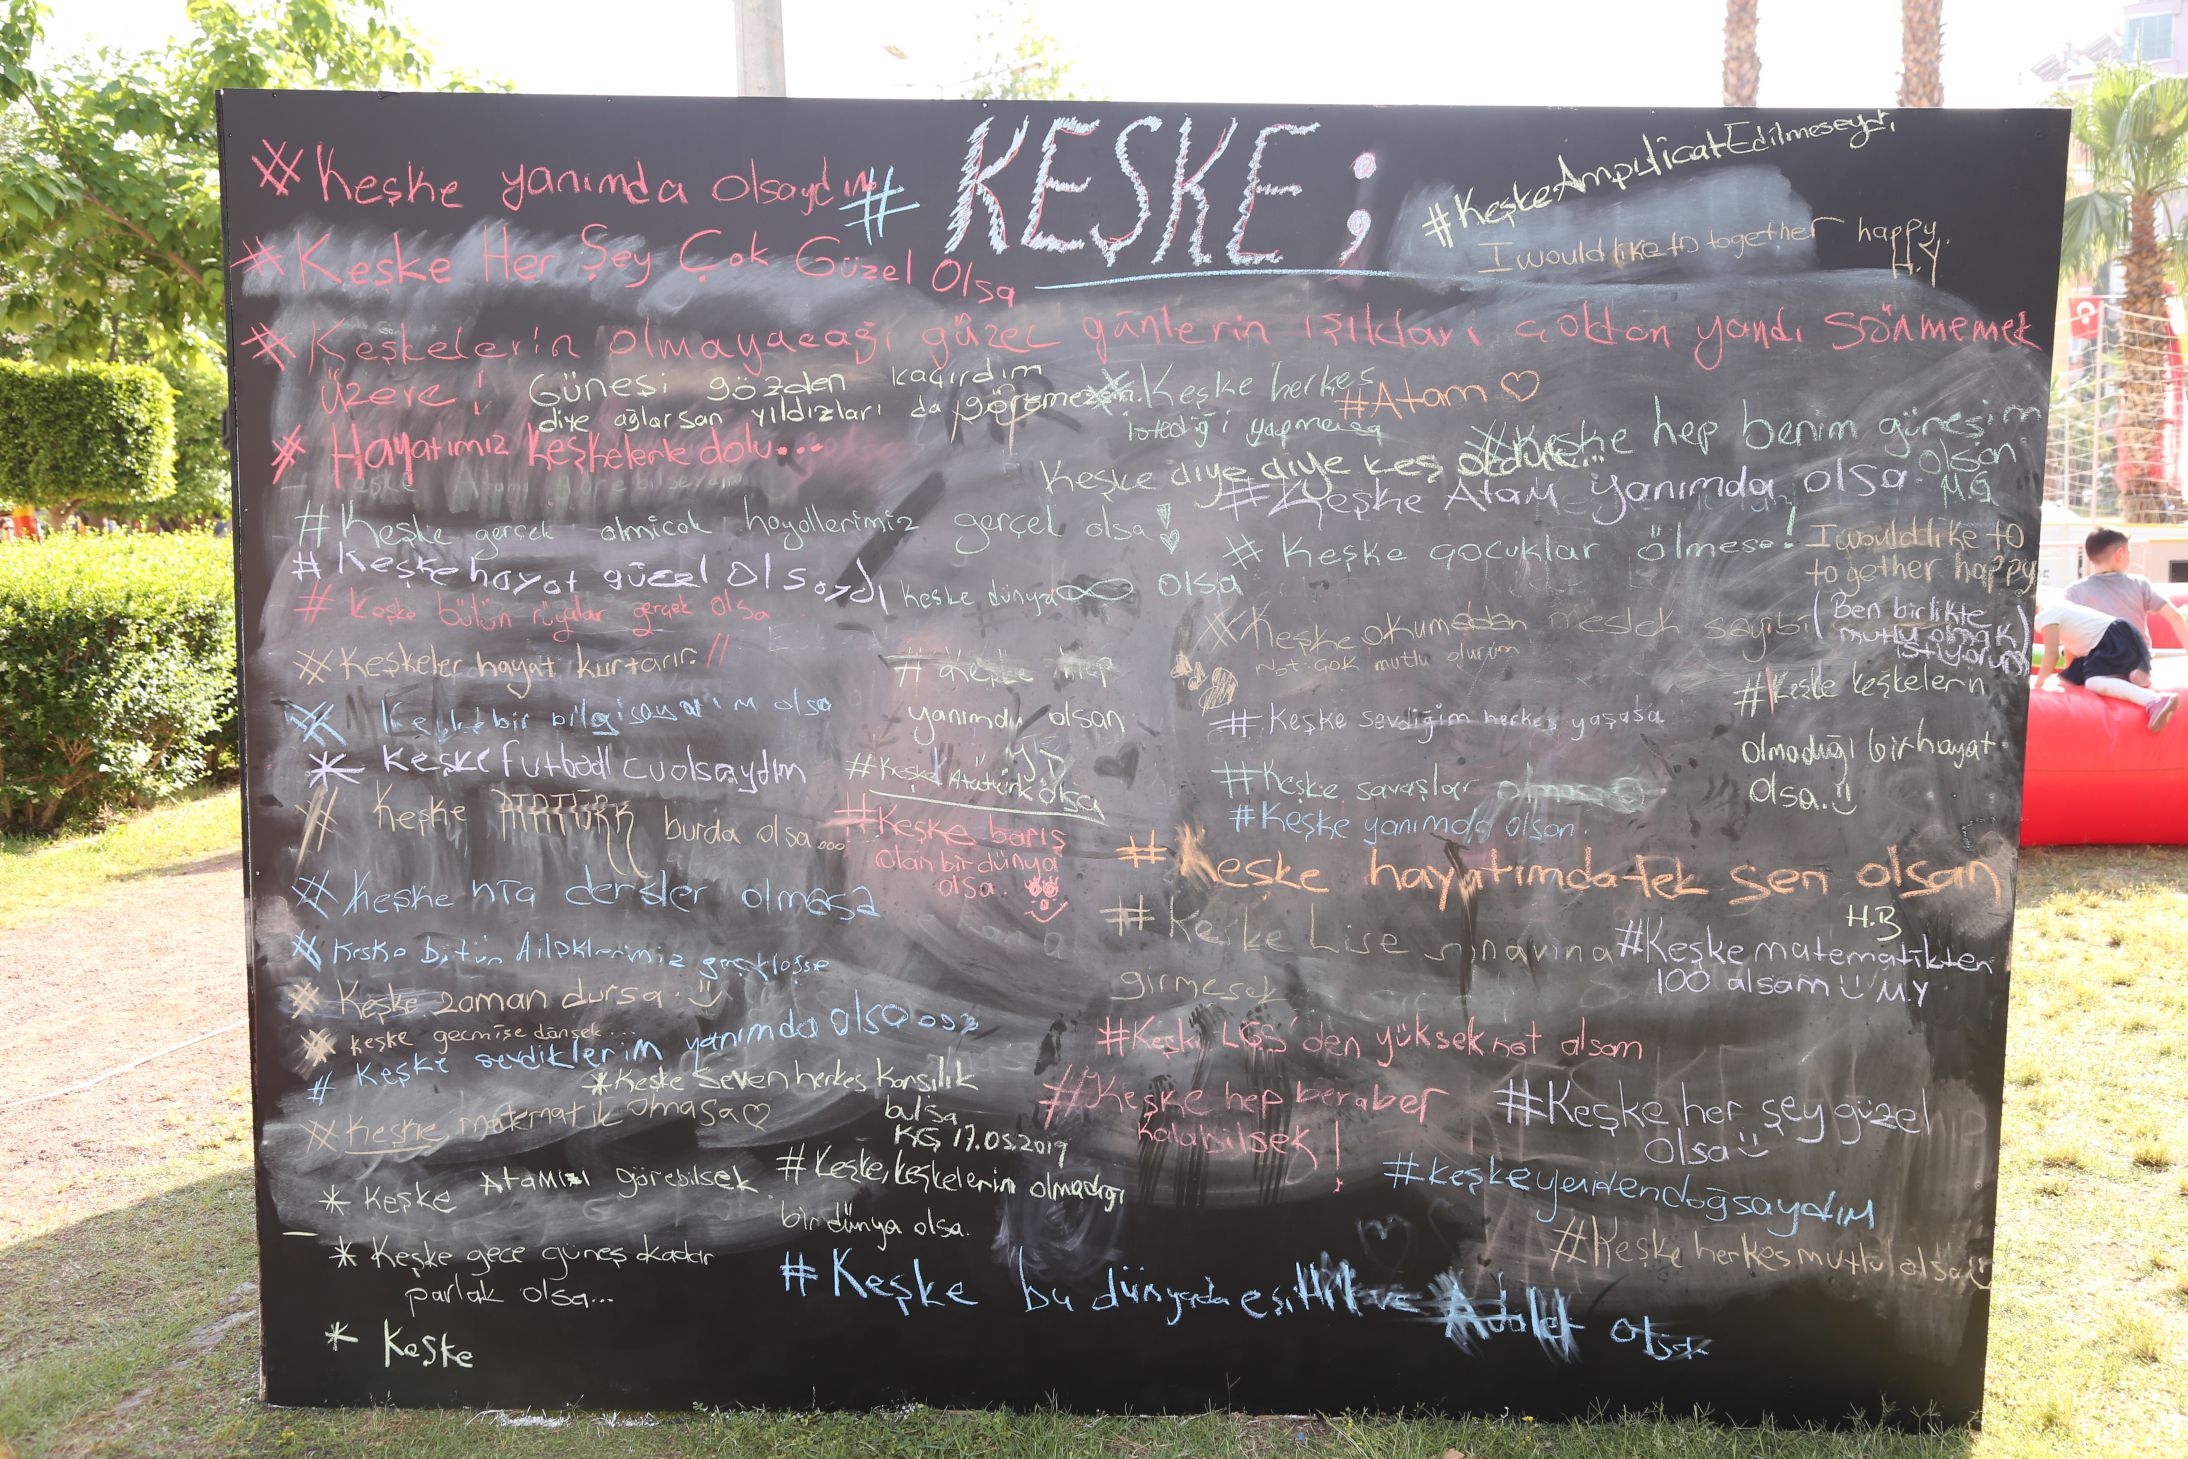 # KEŞKE ;
# Keşke yanımda olsaydın
# KeşkeAmpulicatEdilmeseydi
I would like to together happy.
H.Y
# Keşke Her Şey Çok Güzel Olsa
# Keşkelerin olmayacağı güzel günlerin ışıkları çoktan yandı sönmemek
üzere!
Güneşi gözden kaçırdım
diye ağlarsan yıldızları da göremezsin.
# Keşke herkes
istediği yapmasa
#Atam ♡
# Hayatımız keşkelerle dolu...
#Keşke hep benim güneşim
olsan
M.G
Keşke diye diye keş olduk...
Keşke Atamı görebilseydim
# Keşke Atam yanımda olsa
# Keşke gerçek olmicak hayallerimiz gerçel olsa!
# Keşke çocuklar ölmese!
I would like to
together happy
(Ben birlikte
mutlu olmak
istiyorum)
# Keşke hayat güzel olsaydı
keşke dünya ∞ olsa
# Keşke bütün rüyalar gerçek olsa...
# Keşke okumadan meslek sayibi
Not: Çok mutlu olurum
# Keşkeler hayat kurtarır. //
# Keşke hep
yanımda olsan
# Keşke keşkelerin
olmadığı bir hayat
olsa.
# Keşke bir bilgisayarım olsa
# Keşke sevdiğim herkes yaşasa
* Keşke futbolcuolsaydım
#Keşke Atatürk olsa
# Keşke savaşlar olmasa
# Keşke ATATÜRK burda olsa...
#Keşke barış
olan bir dünya
olsa.
#Keşke yanımda olsan.
# Keşke hayatımda tek sen olsan
H.B
# Keşke hiç dersler olmasa
# Keşke Lise sınavına
girmesek
#Keşke matematikten
100 alsam M.Y
# Keşke bütün dileklerimiz gerçekleşse
# Keşke zaman dursa.
# keşke geçmişe dönsek...
# Keşke sevdiklerim yanımda olsa...
#Keşke LGS'den yüksek not alsam
*Keşke seven herkes karşılık
bulsa
KG 17.05.2019
# Keşke matematik olmasa ♡
#Keşke hep beraber
kalabilsek!
#Keşke her şey güzel
olsa
* Keşke Atamızı görebilsek
# Keşke, keşkelerin olmadığı
bir dünya olsa.
#keşkeyenidendoğsaydım
* Keşke gece güneş kadar
parlak olsa...
#Keşke herkes mutlu olsa
# Keşke bu dünyada eşitlik ve Adalet olsa
* Keşke